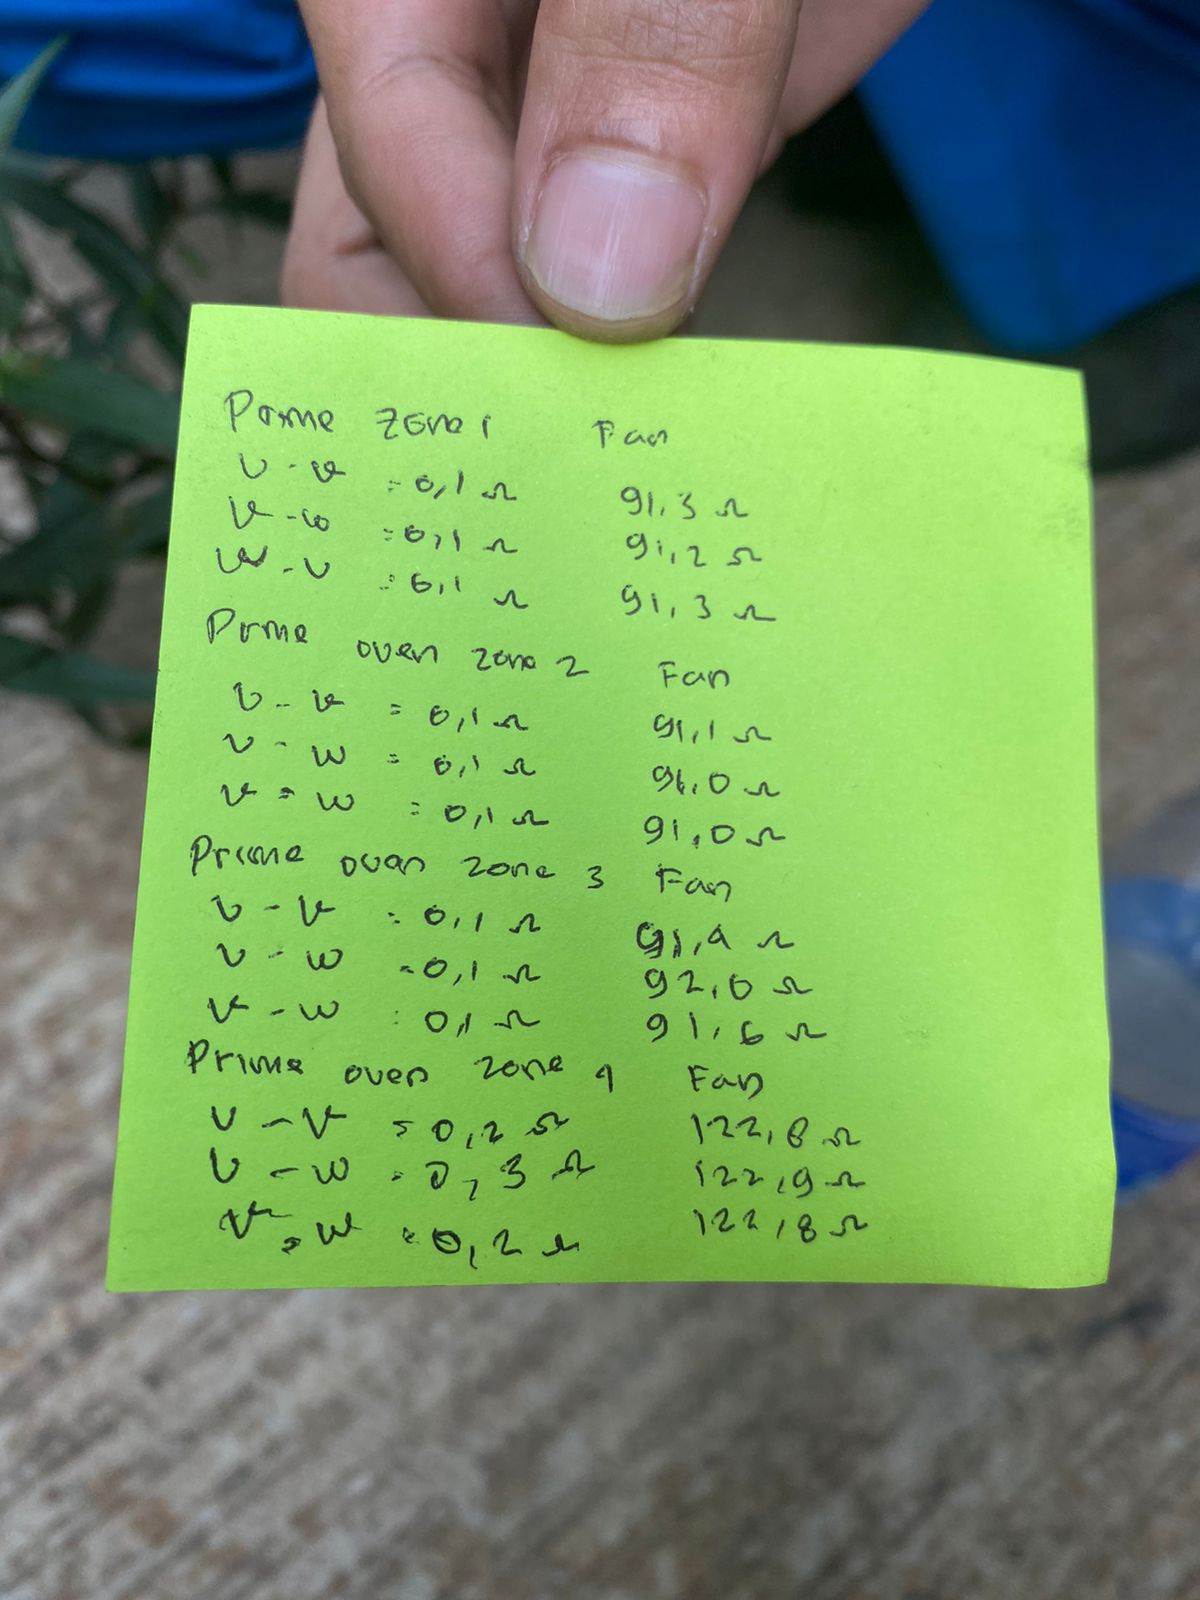 Prime Zone 1 Fan
U - V = 0,1 Ω 91,3 Ω
V - W = 0,1 Ω 91,2 Ω
W - U = 0,1 Ω 91,3 Ω
Prime oven zone 2 Fan
U - V = 0,1 Ω 91,1 Ω
U - W = 0,1 Ω 91,0 Ω
V - W = 0,1 Ω 91,0 Ω
Prime oven zone 3 Fan
U - V = 0,1 Ω 91,9 Ω
U - W = 0,1 Ω 92,0 Ω
V - W = 0,1 Ω 91,6 Ω
Prime oven zone 4 Fan
U - V = 0,2 Ω 122,8 Ω
U - W = 0,3 Ω 122,9 Ω
V - W = 0,2 Ω 122,8 Ω